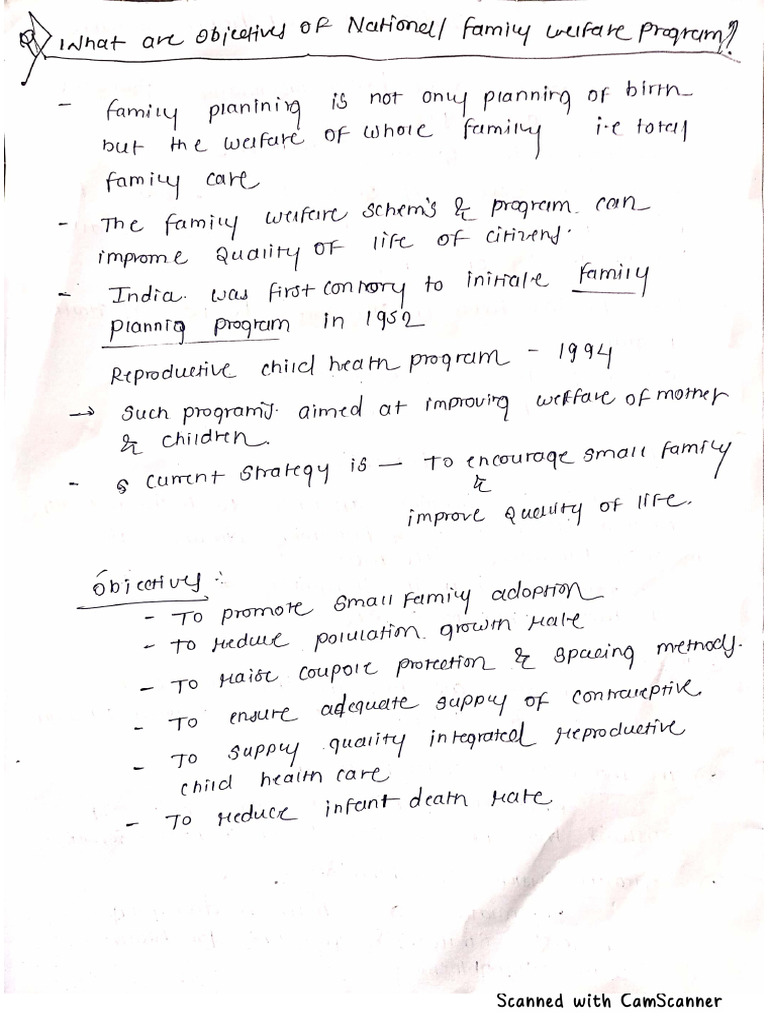 Q) What are Objectives of National/ family welfare program?
- family planining is not only planning of birth
but the welfare of whole family i.e total
family care
- The family welfare schem's & program can
improme Quality of life of citizens.
- India. was first controry to initiale family
plannig program in 1952
Reproductive child health program - 1994
→ Such program's aimed at improving welfare of mother
& children.
- Current strategy is — To encourage small family
&
improve quality of life.
Objectives :-
- To promote small family adoption
- To reduce polulation growth rate
- To raise coupole protection & spacing methods.
- To ensure adequate supply of contraceptive
- To supply quality integrated reproductive
child health care
- To reduce infant death rate
Scanned with CamScanner